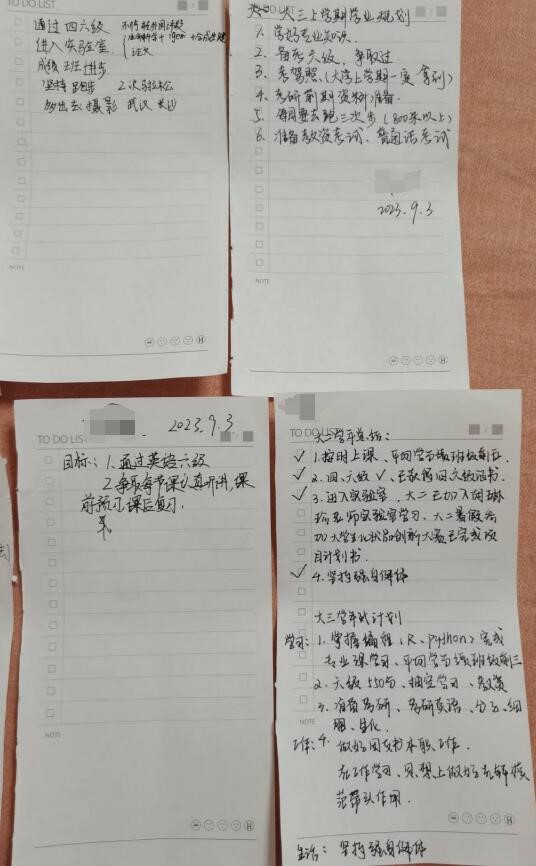 TO DO LIST
通过四六级
进入实验室
论文
成绩 班进步
坚持跑步 2次马拉松
多出去摄影 武汉 长沙
NOTE
TO DO LIST
大三上学期学业规划
1. 学好专业知识.
2. 备考六级, 争取过
3. 考驾照.(大三上学期一定拿到)
4. 考研前期资料准备.
5. 每周要去跑三次步(800米以上)
6. 准备教资考试、普通话考试
2023.9.3
NOTE
TO DO LIST
2023.9.3.
目标: 1. 通过英语六级
2. 争取每节课认真听讲, 课
前预习课后复习.
NOTE
TO DO LIST
大二学年总结:
✓ 1. 按时上课、
✓ 2. 四、六级 ✓、已获得四六级证书.
✓ 3. 进入实验室. 大二已加入
老师实验室学习、大二暑假参
加大学生化状品创新大赛已完成项
目计划书.
✓ 4. 坚持强身健体
大三学年计划
学习: 1. 掌握编程(R、python)完成
专业课学习、平均学分绩班级前三
2. 六级550分、
3. 准备考研、考研英语、分子、细
胞、生化.
NOTE
工作: 4. 做好团支书本职工作.
在工作学习、思想上做好先锋模
范带头作用.
生活: 坚持强身健体